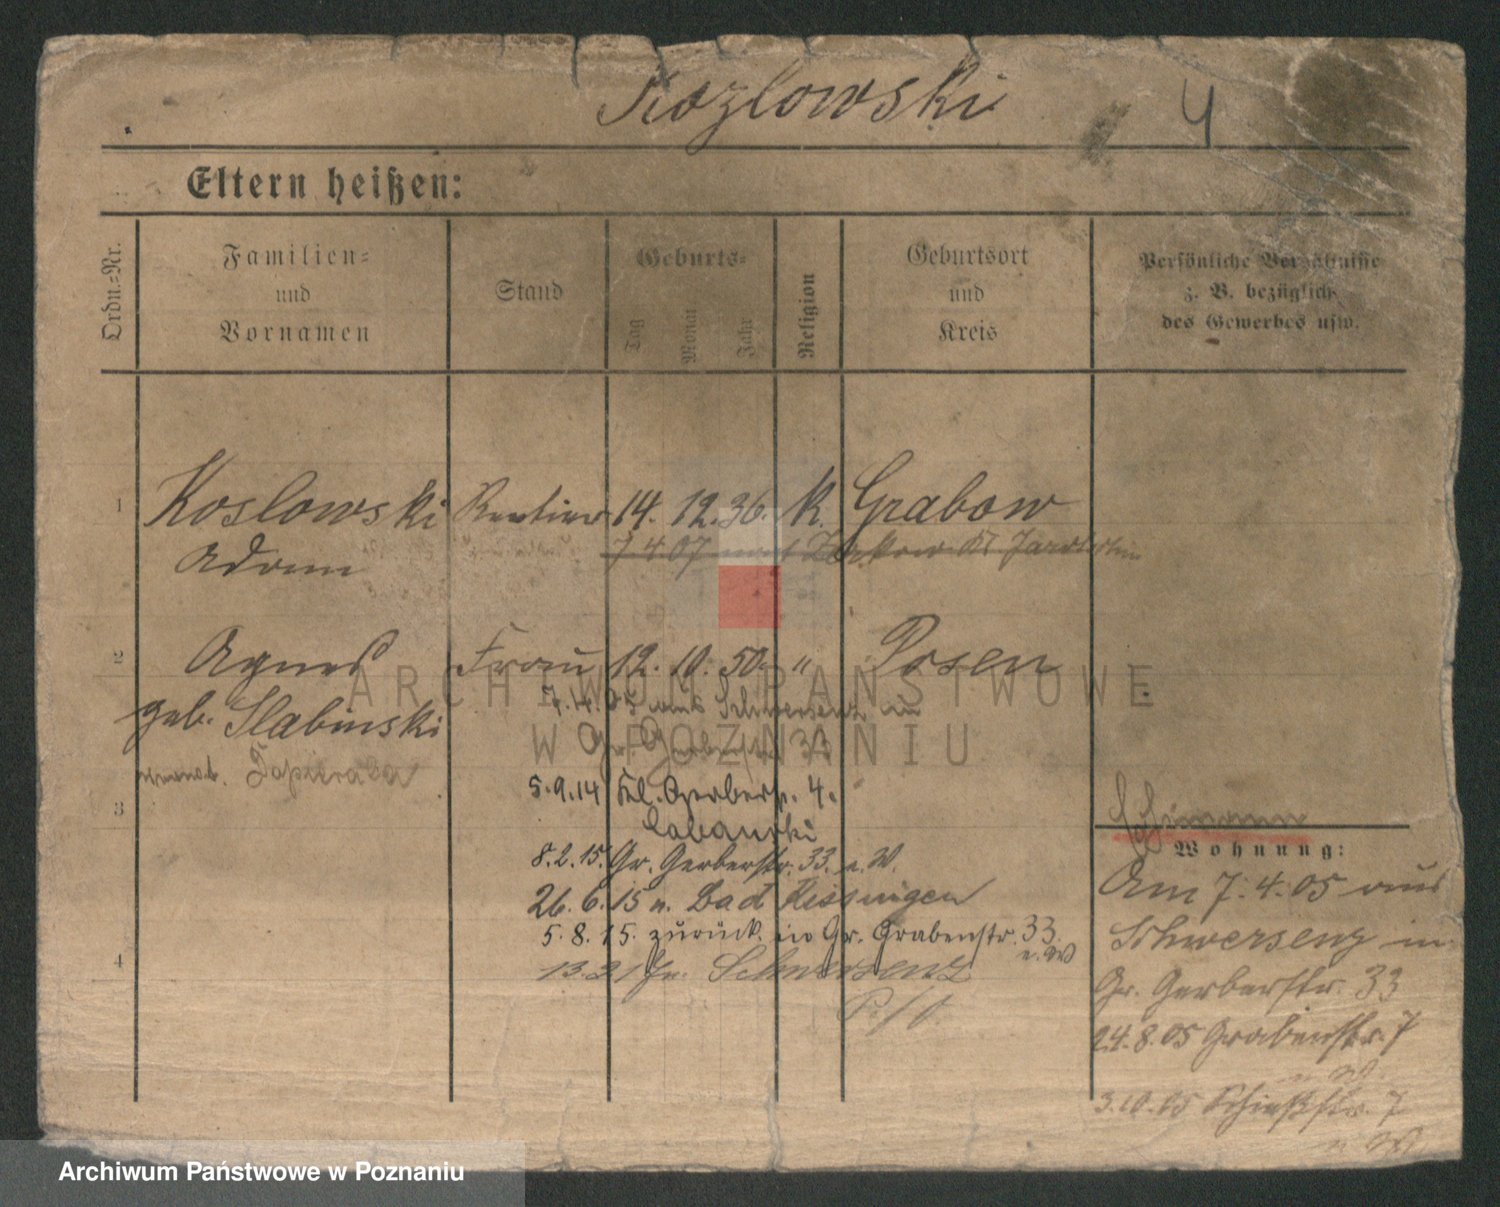 Kozlowski 4
Eltern heißen:
Ordn.-Nr.
Familien-
und
Vornamen
Stand
Geburts-
Tag
Monat
Jahr
Religion
Geburtsort
und
Kreis
Persönliche Verhältnisse
z. B. bezüglich
des Gewerbes usw.
1 Koslowski Rentier 14. 12. 36. K. Grabow
Adam
7 4 07
2 Agnes Frau 12. 10. 50. " Posen
geb. Slabinski
7. 4. 05 aus Schwersenz in
Gr. Gerberstr. 33
5. 9. 14 Kl. Gerberstr. 4.
3
8. 2. 15. Gr. Gerberstr. 33. e. W.
26. 6. 15 n. Bad Kissingen
5. 8. 15. zurück in Gr. Grabenstr. 33.
e. W
4
Schwersenz
Wohnung:
Am 7. 4. 05 aus
Schwersenz in
Gr. Gerberstr. 33
24. 8. 05 Grabenstr. 7
3. 10. 05 Schießstr. 7
ARCHIWUM PAŃSTWOWE
W POZNANIU
Archiwum Państwowe w Poznaniu